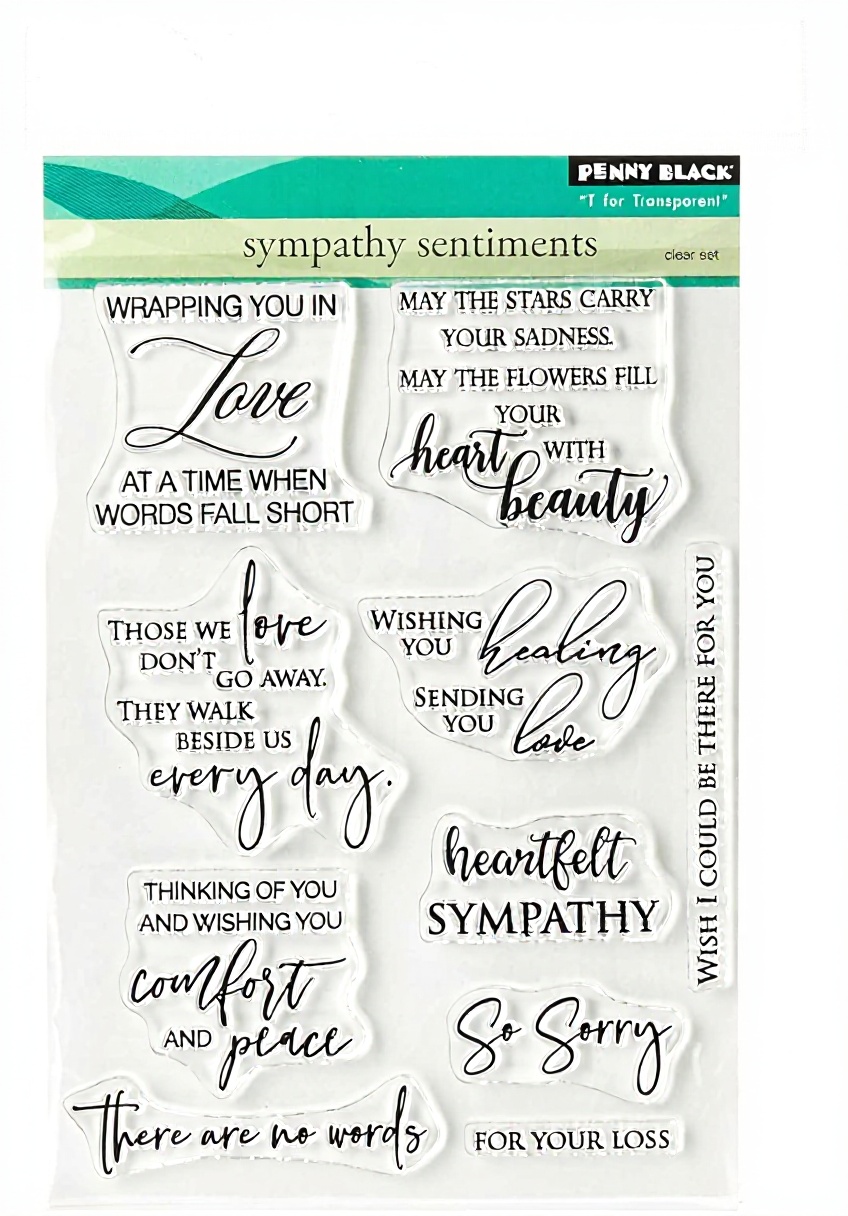 PENNY BLACK
"T for Transparent"
sympathy sentiments
clear set
WRAPPING YOU IN
Love
AT A TIME WHEN
WORDS FALL SHORT
MAY THE STARS CARRY
YOUR SADNESS.
MAY THE FLOWERS FILL
YOUR
heart WITH
beauty
THOSE WE love
DON'T
GO AWAY.
THEY WALK
BESIDE US
every day.
WISHING
YOU healing
SENDING
YOU love
WISH I COULD BE THERE FOR YOU
heartfelt
SYMPATHY
THINKING OF YOU
AND WISHING YOU
comfort
AND peace
So Sorry
there are no words
FOR YOUR LOSS